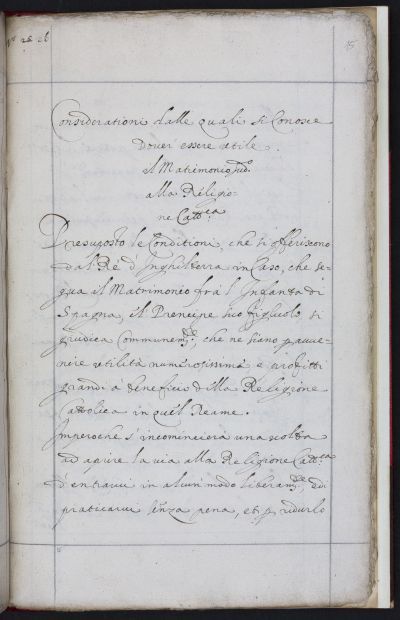 15
Considerationi dalle quali si Conosce
Dover essere utile
il Matrimonio sud.º
alla Religio-
ne Catt.ca
Presuposto le Conditioni, che si offeriscono
dal Ré d'Inghilterra in Caso, che se-
gua il Matrimonio frà l'Infanta di
Spagna, et il Prencipe suo figliuolo si
giudica Communem.te che ne siano p auue-
nire utilità numerosissime, e profitti
grandi à beneficio della Religione
Cattolica in quel Reame.
Imperoche s'incomincierà una volta
ad aprire la via alla Religione Catt.ca
d'entrarui in alcun modo liberam.te, di
praticarui senza pena, et p ridurlo